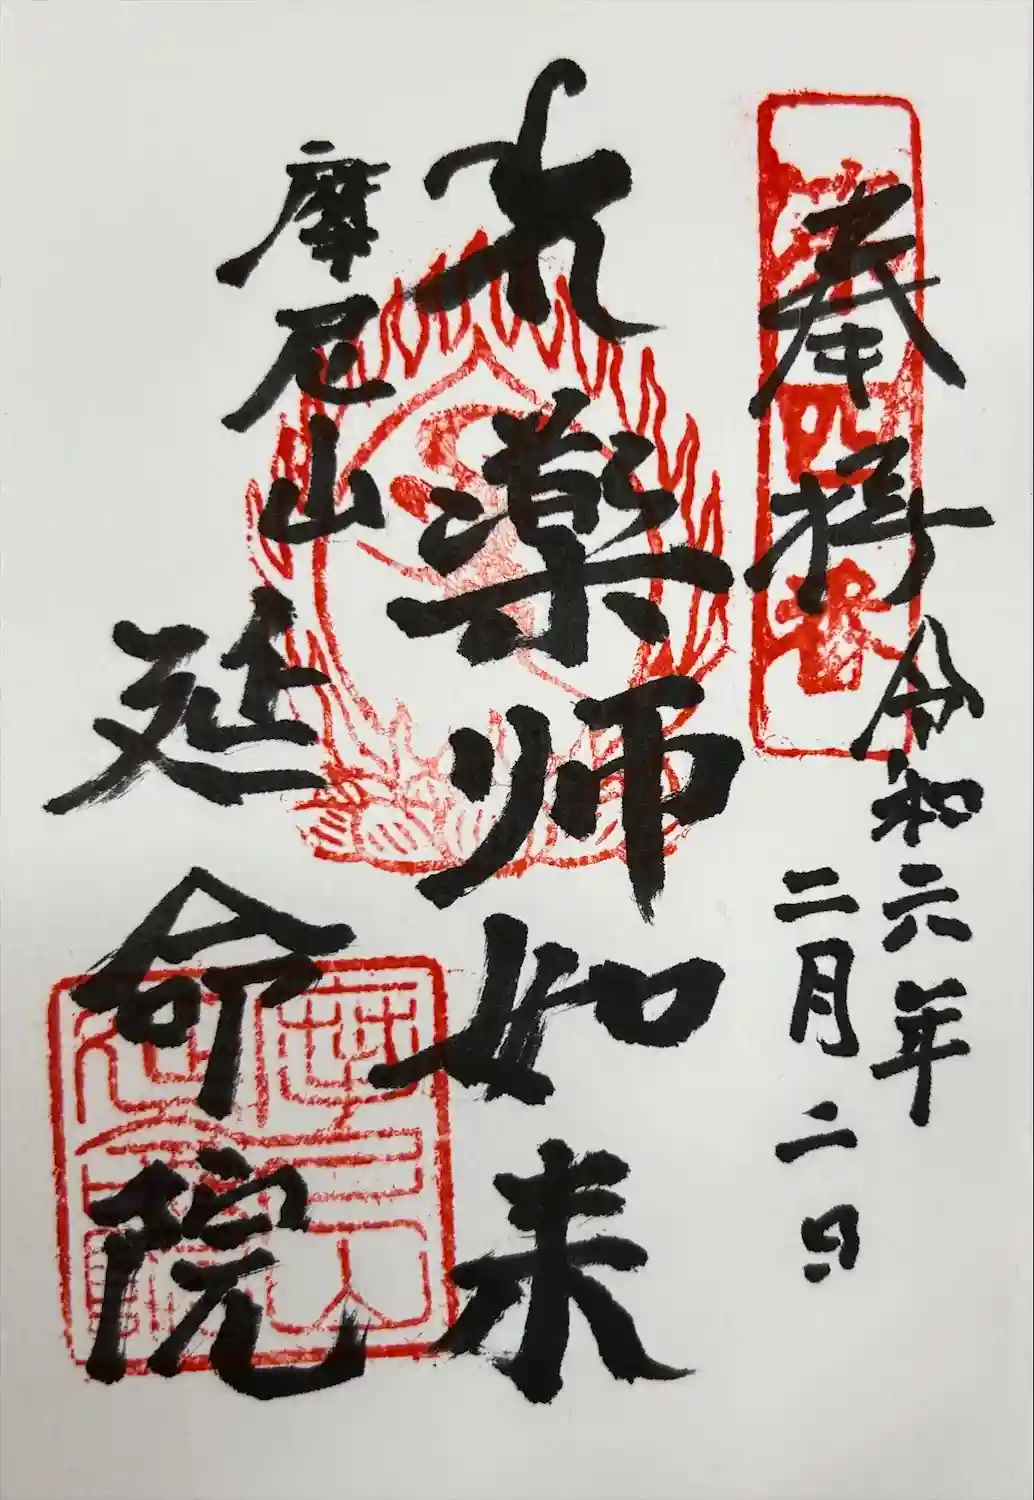 奉拝
令和六年
二月二日
薬師如来
摩尼山
延命院